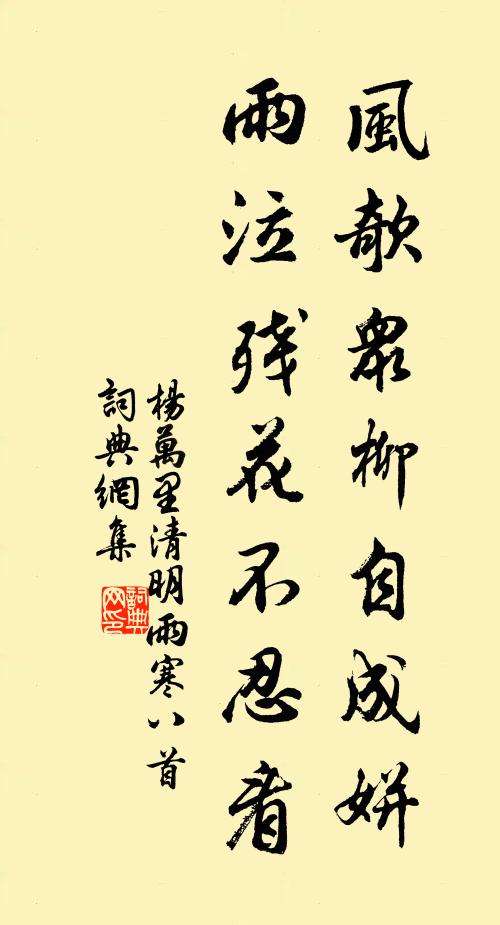 風欹眾柳自成妍
雨泣残花不忍看
楊萬里清明雨寒八首
詞典網集
詞典网印